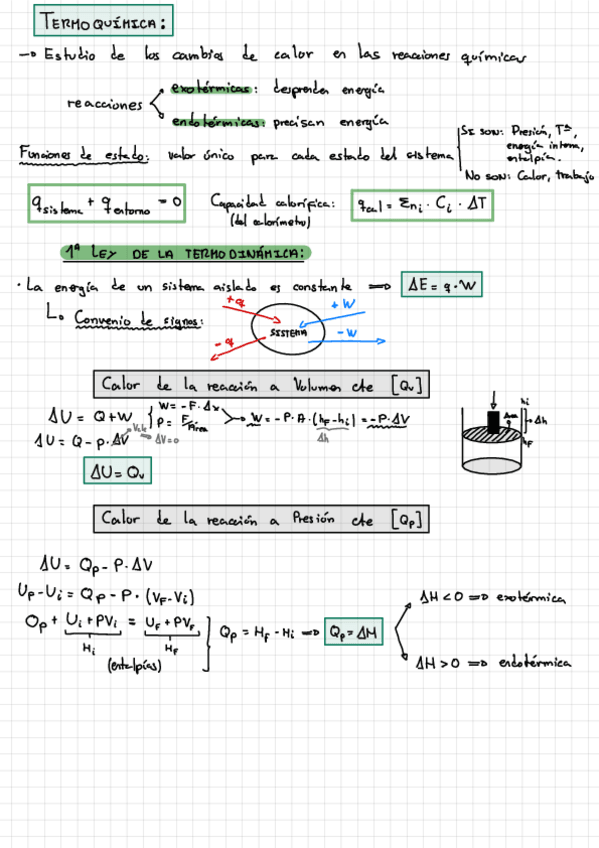 TERMOQUÍMICA:
→ Estudio de los cambios de calor en las reacciones químicas
reacciones
exotérmicas: desprenden energía
endotérmicas: precisan energía
Funciones de estado: valor único para cada estado del sistema
SI SON: Presión, Tª,
energía interna,
entalpía.
No SON: Calor, trabajo
q sistema + q entorno = 0
Capacidad calorífica:
(del calorímetro)
q cal = Σni · Ci · ΔT
1ª LEY DE LA TERMODINÁMICA:
· La energía de un sistema aislado es constante ⇒ ΔE = q · W
Convenio de signos:
+q
+W
SISTEMA
-q
-W
Calor de la reacción a Volumen cte [Qv]
ΔU = Q + W
W = -F · Δx
P = F/Área
W = -P · A · (hF - hi) = -P · ΔV
Δh
ΔU = Q - P · ΔV
V cte → ΔV = 0
ΔU = Qv
hi
Área
Δh
hF
Calor de la reacción a Presión cte [Qp]
ΔU = Qp - P · ΔV
UF - Ui = Qp - P · (VF - Vi)
Qp + Ui + PVi = UF + PVF
Hi
HF
(entalpías)
Qp = HF - Hi ⇒ Qp = ΔH
ΔH < 0 ⇒ exotérmica
ΔH > 0 ⇒ endotérmica